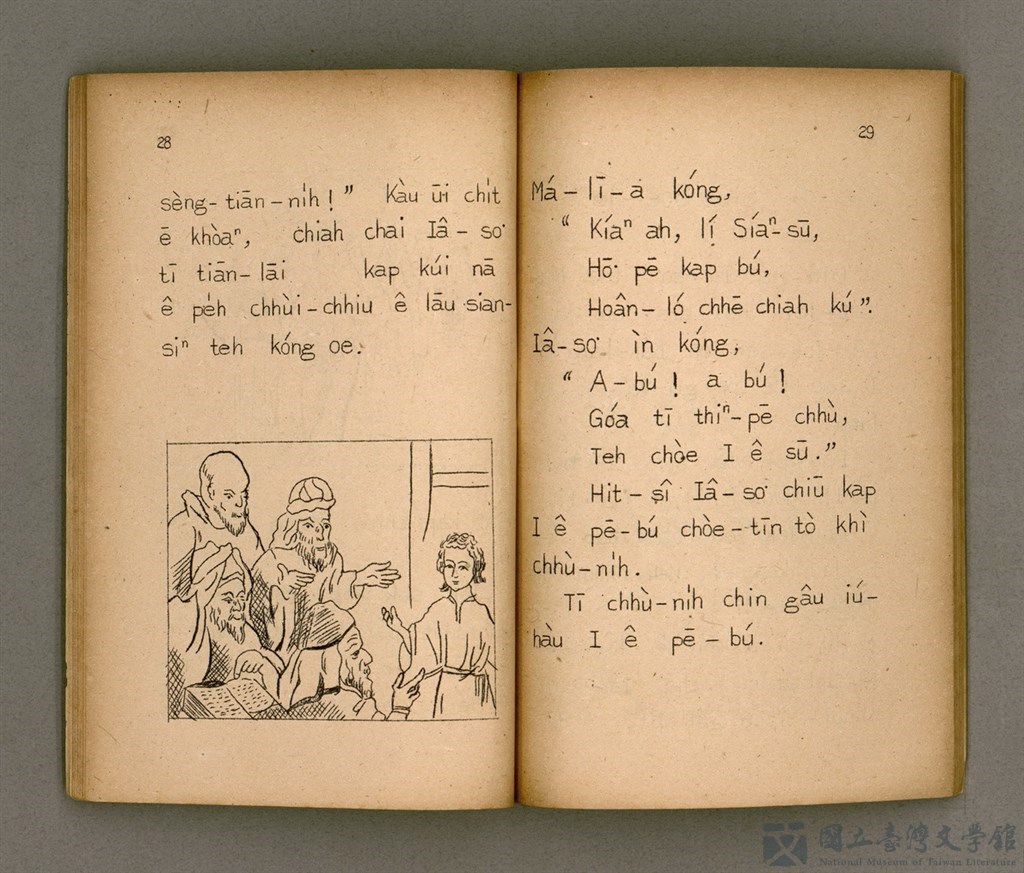 28
sèng-tiān-ni̍h!" Kàu ūi chi̍t
ē khòaⁿ, chiah chai Iâ-so͘
tī tiān-lāi kap kúi nā
ê pe̍h chhùi-chhiu ê lāu sian-
siⁿ teh kóng oe.
29
Má-lī-a kóng,
"Kíaⁿ ah, lí Síaⁿ-sū,
Hō͘ pē kap bú,
Hoân-ló chhē chiah kú".
Iâ-so͘ ìn kóng,
"A-bú! a bú!
Góa tī thiⁿ-pē chhù,
Teh chòe I ê sū."
Hit-sî Iâ-so͘ chiū kap
I ê pē-bú chòe-tīn tò khì
chhù-ni̍h.
Tī chhù-ni̍h chin gâu iú-
hàu I ê pē-bú.
國立臺灣文學館
National Museum of Taiwan Literature